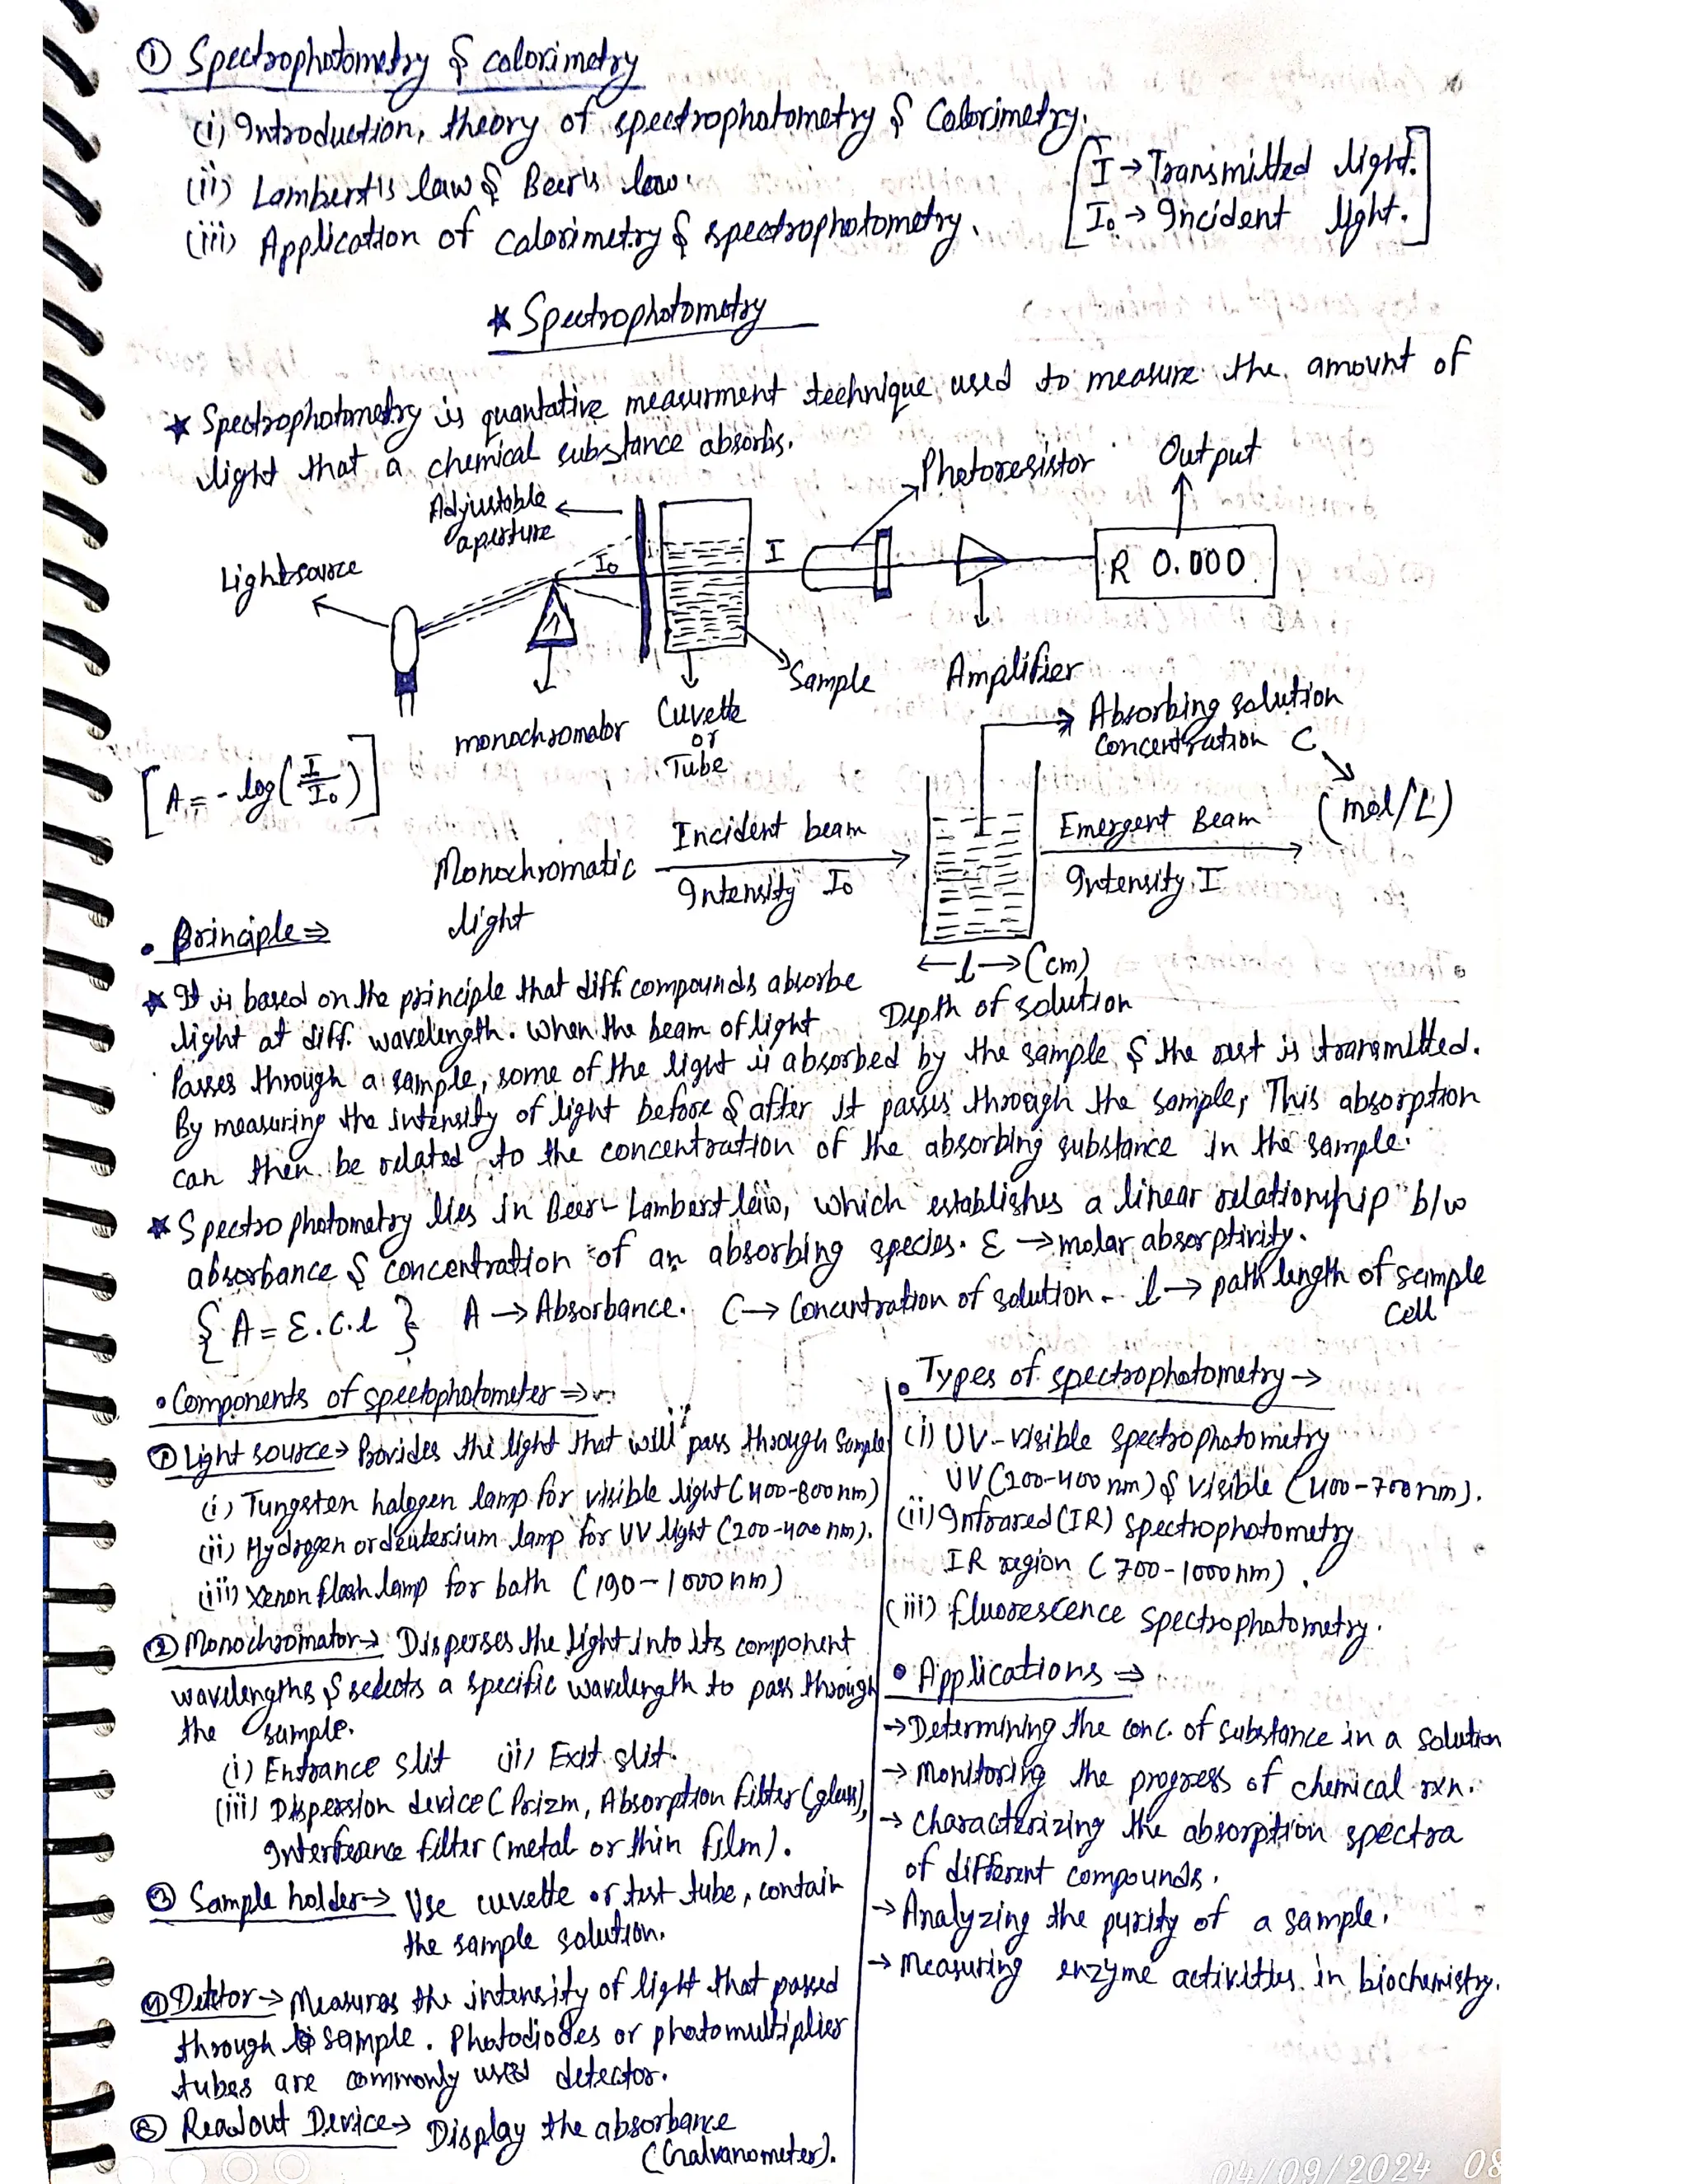 ① Spectrophotometry & colorimetry
(i) Introduction, theory of spectrophotometry & Colorimetry.
(ii) Lambert's law & Beer's law.
(iii) Application of Calorimetry & spectrophotometry.
[I → Transmitted light.
I₀ → Incident light.]
★ Spectrophotometry
★ Spectrophotometry is quantative measurment technique used to measure the amount of
light that a chemical substance absorbs.
Adjustable
aperture
Photoresistor
Output
Light source
I₀
I
R 0.000
Sample
Amplifier
monochromator
Cuvette
or
Tube
[A = - log(I/I₀)]
Absorbing solution
Concentration C
(mol/L)
Monochromatic
light
Incident beam
Intensity I₀
Emergent Beam
Intensity I
← l → (cm)
Depth of solution
• Principle ⇒
★ It is based on the principle that diff. compounds absorbe
light at diff. wavelength. When the beam of light
Passes through a sample, some of the light is absorbed by the sample & the rest is transmitted.
By measuring the intensity of light before & after it passes through the sample, This absorption
can then be related to the concentration of the absorbing substance in the sample.
★ Spectrophotometry lies in Beer-Lambert law, which establishes a linear relationship b/w
absorbance & concentration of an absorbing species. ε → molar absorptivity.
{A = ε.C.l} A → Absorbance. C → Concentration of solution - l → path length of sample
Cell
• Components of spectophotometer ⇒
① Light source → Provides the light that will pass through Sample
(i) Tungsten halogen lamp for visible light (400-800nm)
(ii) Hydrogen or deuterium lamp for UV light (200-400 nm).
(iii) Xenon flash lamp for both (190-1000nm)
② Monochromator → Disperses the light into its component
wavelengths & selects a specific wavelength to pass through
the sample.
(i) Entrance slit (ii) Exit slit.
(iii) Dispersion device (Prizm, Absorption Filter (glass),
Interfearance filter (metal or thin film).
③ Sample holder → Use cuvette or test tube, contain
the sample solution.
④ Dettor → Measures the intensity of light that passed
through sample. Photodiodes or photomultiplier
tubes are commonly used detector.
⑤ Readout Device → Display the absorbance
(Galvanometer).
• Types of spectrophotometry →
(i) UV-visible Spectrophotometry
UV (200-400 nm) & visible (400-700nm).
(ii) Infrared (IR) spectrophotometry
IR region (700-1000nm).
(iii) fluorescence spectrophotometry.
• Applications ⇒
→ Determining the conc. of substance in a solution
→ Monitoring the progress of chemical rxn.
→ Characterizing the absorption spectra
of different compounds.
→ Analyzing the purity of a sample.
→ Measuring enzyme activities in biochemistry.
04/09/2024 08